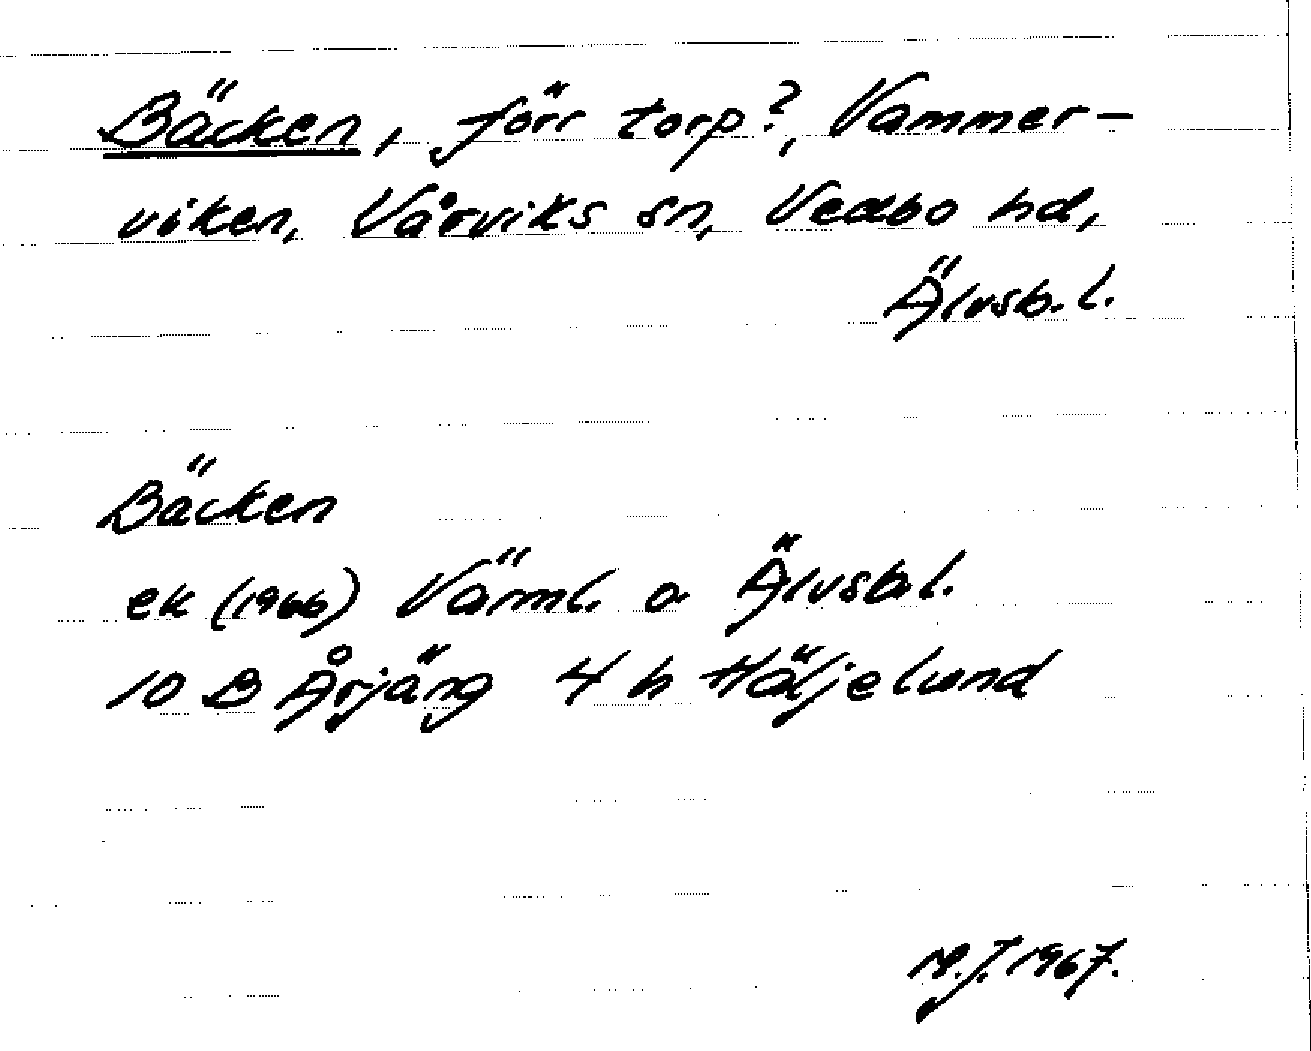 Bäcken, förr torp?, Vammer-
viken, Vårviks sn, Vedbo hd,
Älvsb. l.
Bäcken
ek (1966) Värml. o Älvsb.l.
10 B Årjäng 4 h Häljelund
M.J. 1967.